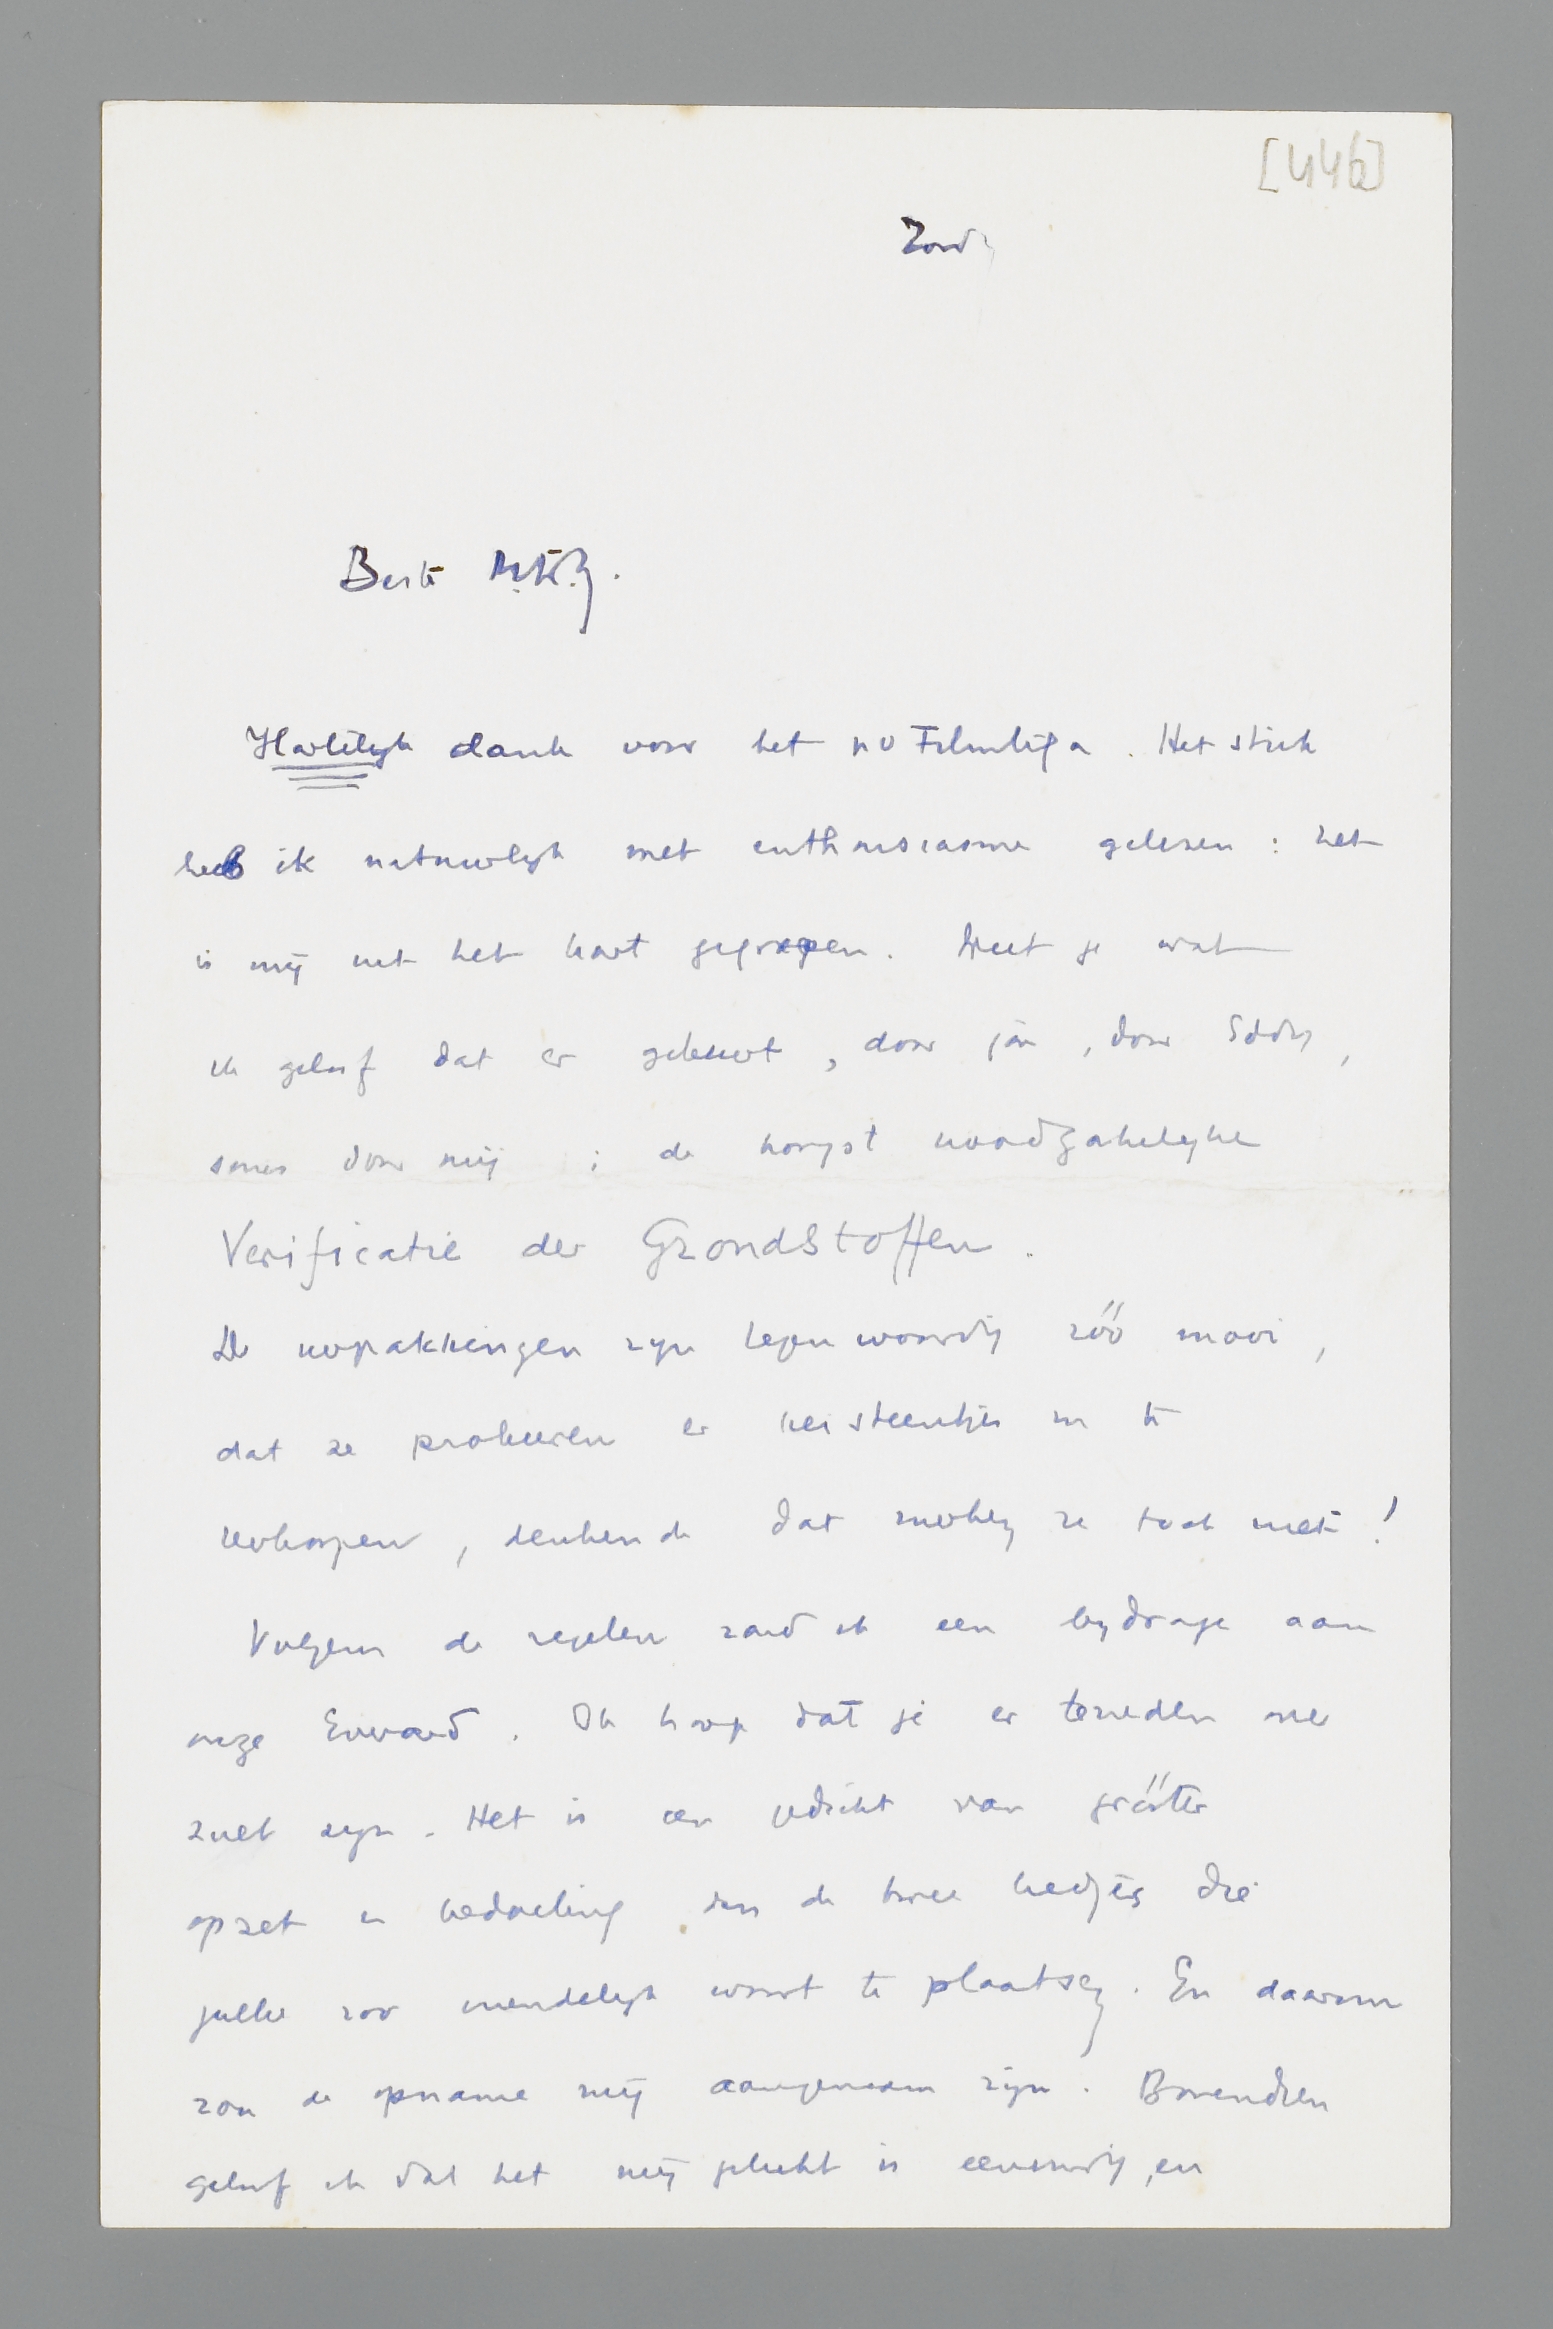 [446]
Zond.
Beste
Hartelijk dank voor het no Filmliga. Het stuk
heb ik natuurlijk met enthousiasme gelezen: het
is mij uit het hart gegrepen. Weet je wat
ik geloof dat er gebeurt, door jou, door Eddy,
soms door mij: de hoogst noodzakelijke
Verificatie der Grondstoffen.
De verpakkingen zijn tegenwoordig zóó mooi,
dat ze probeeren er keisteentjes in te
verkoopen, denkende dat merken ze toch niet!
Volgens de regelen zond ik een bijdrage aan
onze Everard. Ik hoop dat je er tevreden mee
zult zijn. Het is een gedicht van gróóter
opzet en bedoeling dan de twee liedjes die
jullie zoo vriendelijk waart te plaatsen. En daarom
zou de opname mij aangenaam zijn. Bovendien
geloof ik dat het mij gelukt is eenvoudig, en